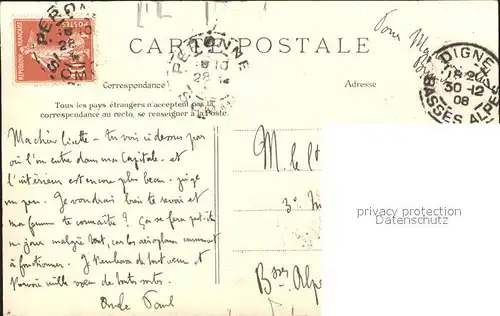 CARTE POSTALE
PERONNE
28
DIGNE
18 20
30-12
08
BASSES ALPES
Correspondance
Adresse
Tous les pays étrangers n'acceptent pas la
correspondance au recto, se renseigner à la Poste.
POSTES
10
Ma chère Linette - tu vois ci dessous par
où l'on entre dans ma Capitale - et
l'intérieur est encore plus beau - juge
un peu. Je voudrais bien te revoir et
ma femme te connaître ! Ça se fera peut-être
un jour malgré tout, car les aéroplanes commencent
à fonctionner. Je t'embrasse de tout cœur et
mille vœux de toutes sortes.
Oncle Paul
M. le
3e
Bses Alpes
privacy protection
Datenschutz